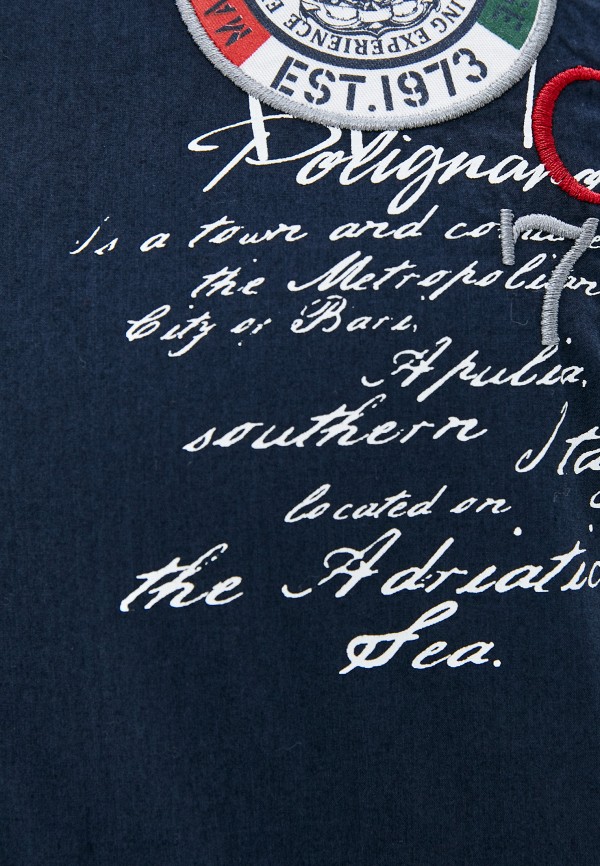 MA
ING EXPERIENCE E
EST.1973
Polignano
is a town and comune
the Metropolitan
City of Bari,
7
Apulia,
southern Ita
located on
the Adriatic
Sea.